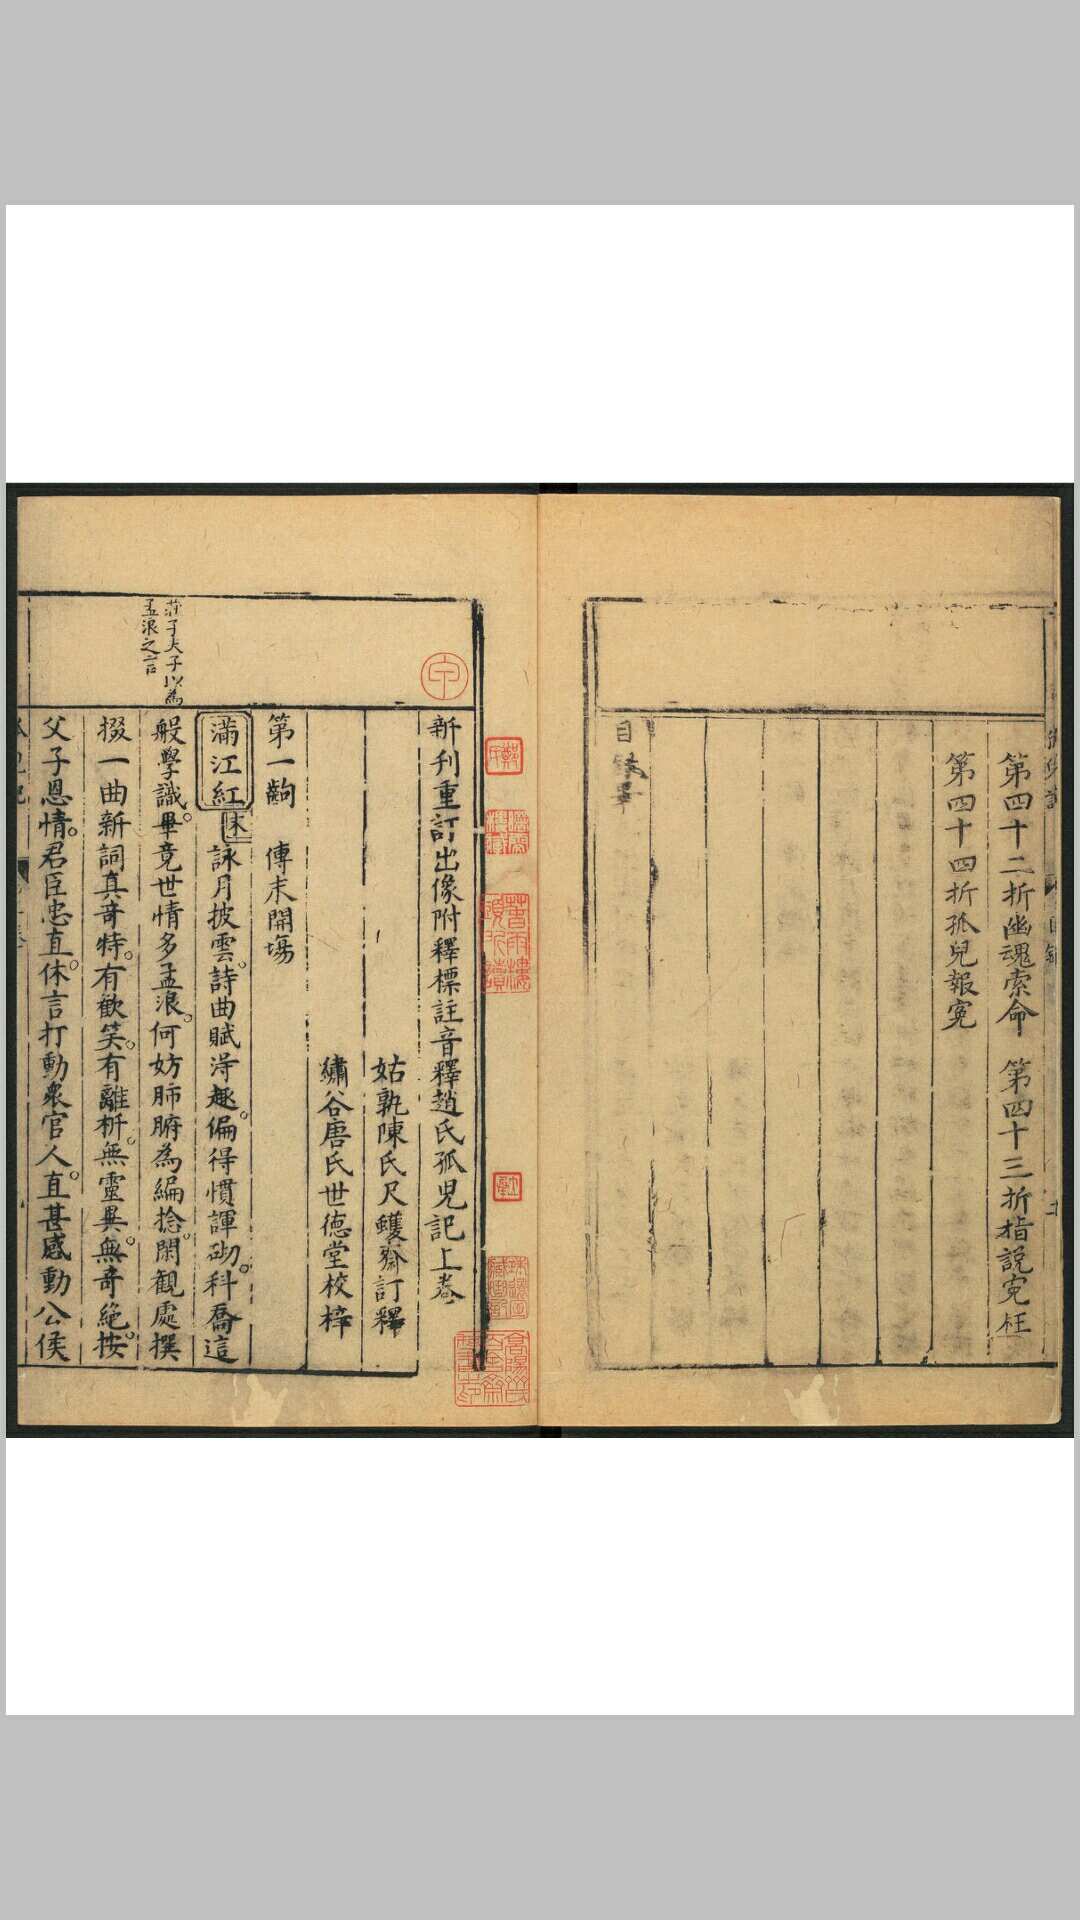 第四十二折幽魂索命　第四十三折指說寃枉
第四十四折孤兒報寃
目錄畢
新刊重訂出像附釋標註音釋趙氏孤兒記上卷
姑孰陳氏尺蠖齋訂釋
繡谷唐氏世德堂校梓
第一齣　傳末開場
滿江紅 末 詠月披雲。詩曲賦淂趣。偏得慣諢砌。科喬這
般學識。畢竟世情多孟浪。何妨肺腑為編捻。閑観處撰
掇一曲新詞真竒特。有歡笑。有離析。無靈異。無竒絶。按
父子恩情。君臣忠直。休言打動衆官人。直甚感動公侯
莊子夫子以為
孟浪之言